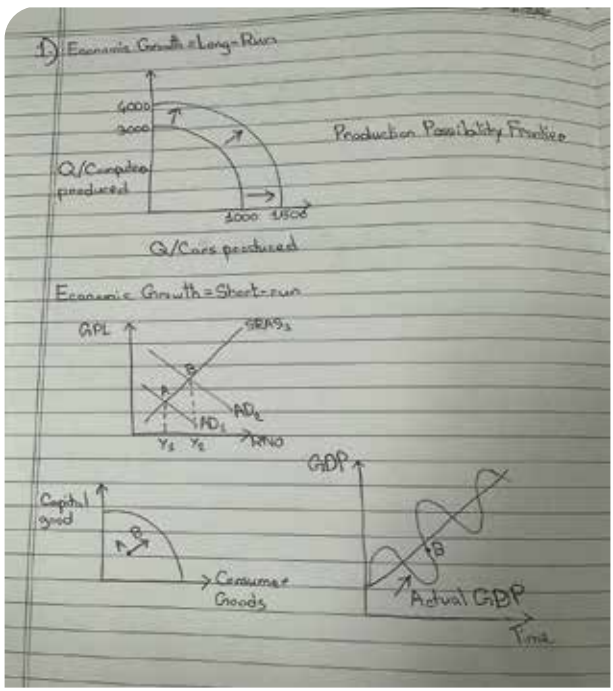 1.) Economic Growth = Long-Run
4000
3000
Production Possibility Frontier
Q/Computer
produced
1000 1500
Q/Cars produced
Economic Growth = Short-run
GPL
SRAS1
B
A
AD2
AD1
Y1 Y2 RNO
GDP
Capital
good
B
B
Consumer
Goods
Actual GDP
Time